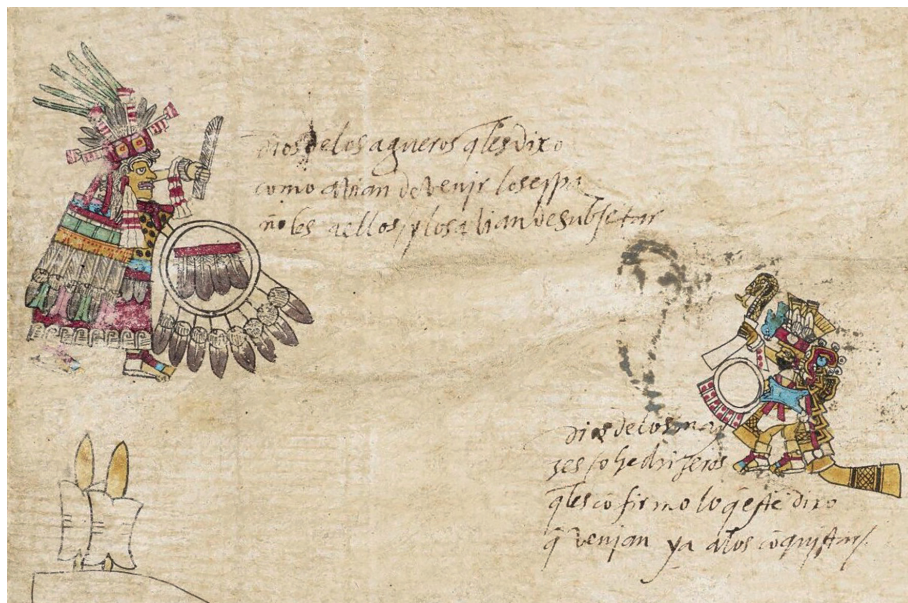 dios de los agueros q̃ les dixo
como avian de venir los espa
ñoles a ellos y los avian de subjetar
dios de los ma
ges o hechizeros
q̃ les cõfirmo lo q̃ este dixo
q̃ venian ya a los cõquistar